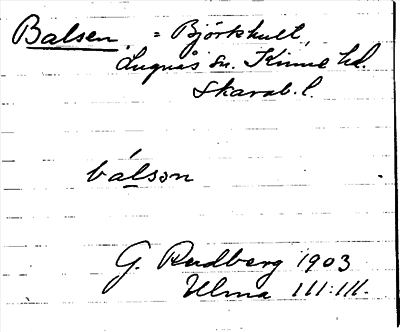 Balsen. = Björkhult,
Lugnås sn. Kinne hd.
Skarab. l.
bálsən
G. Rudberg 1903
Ulma 111:111.